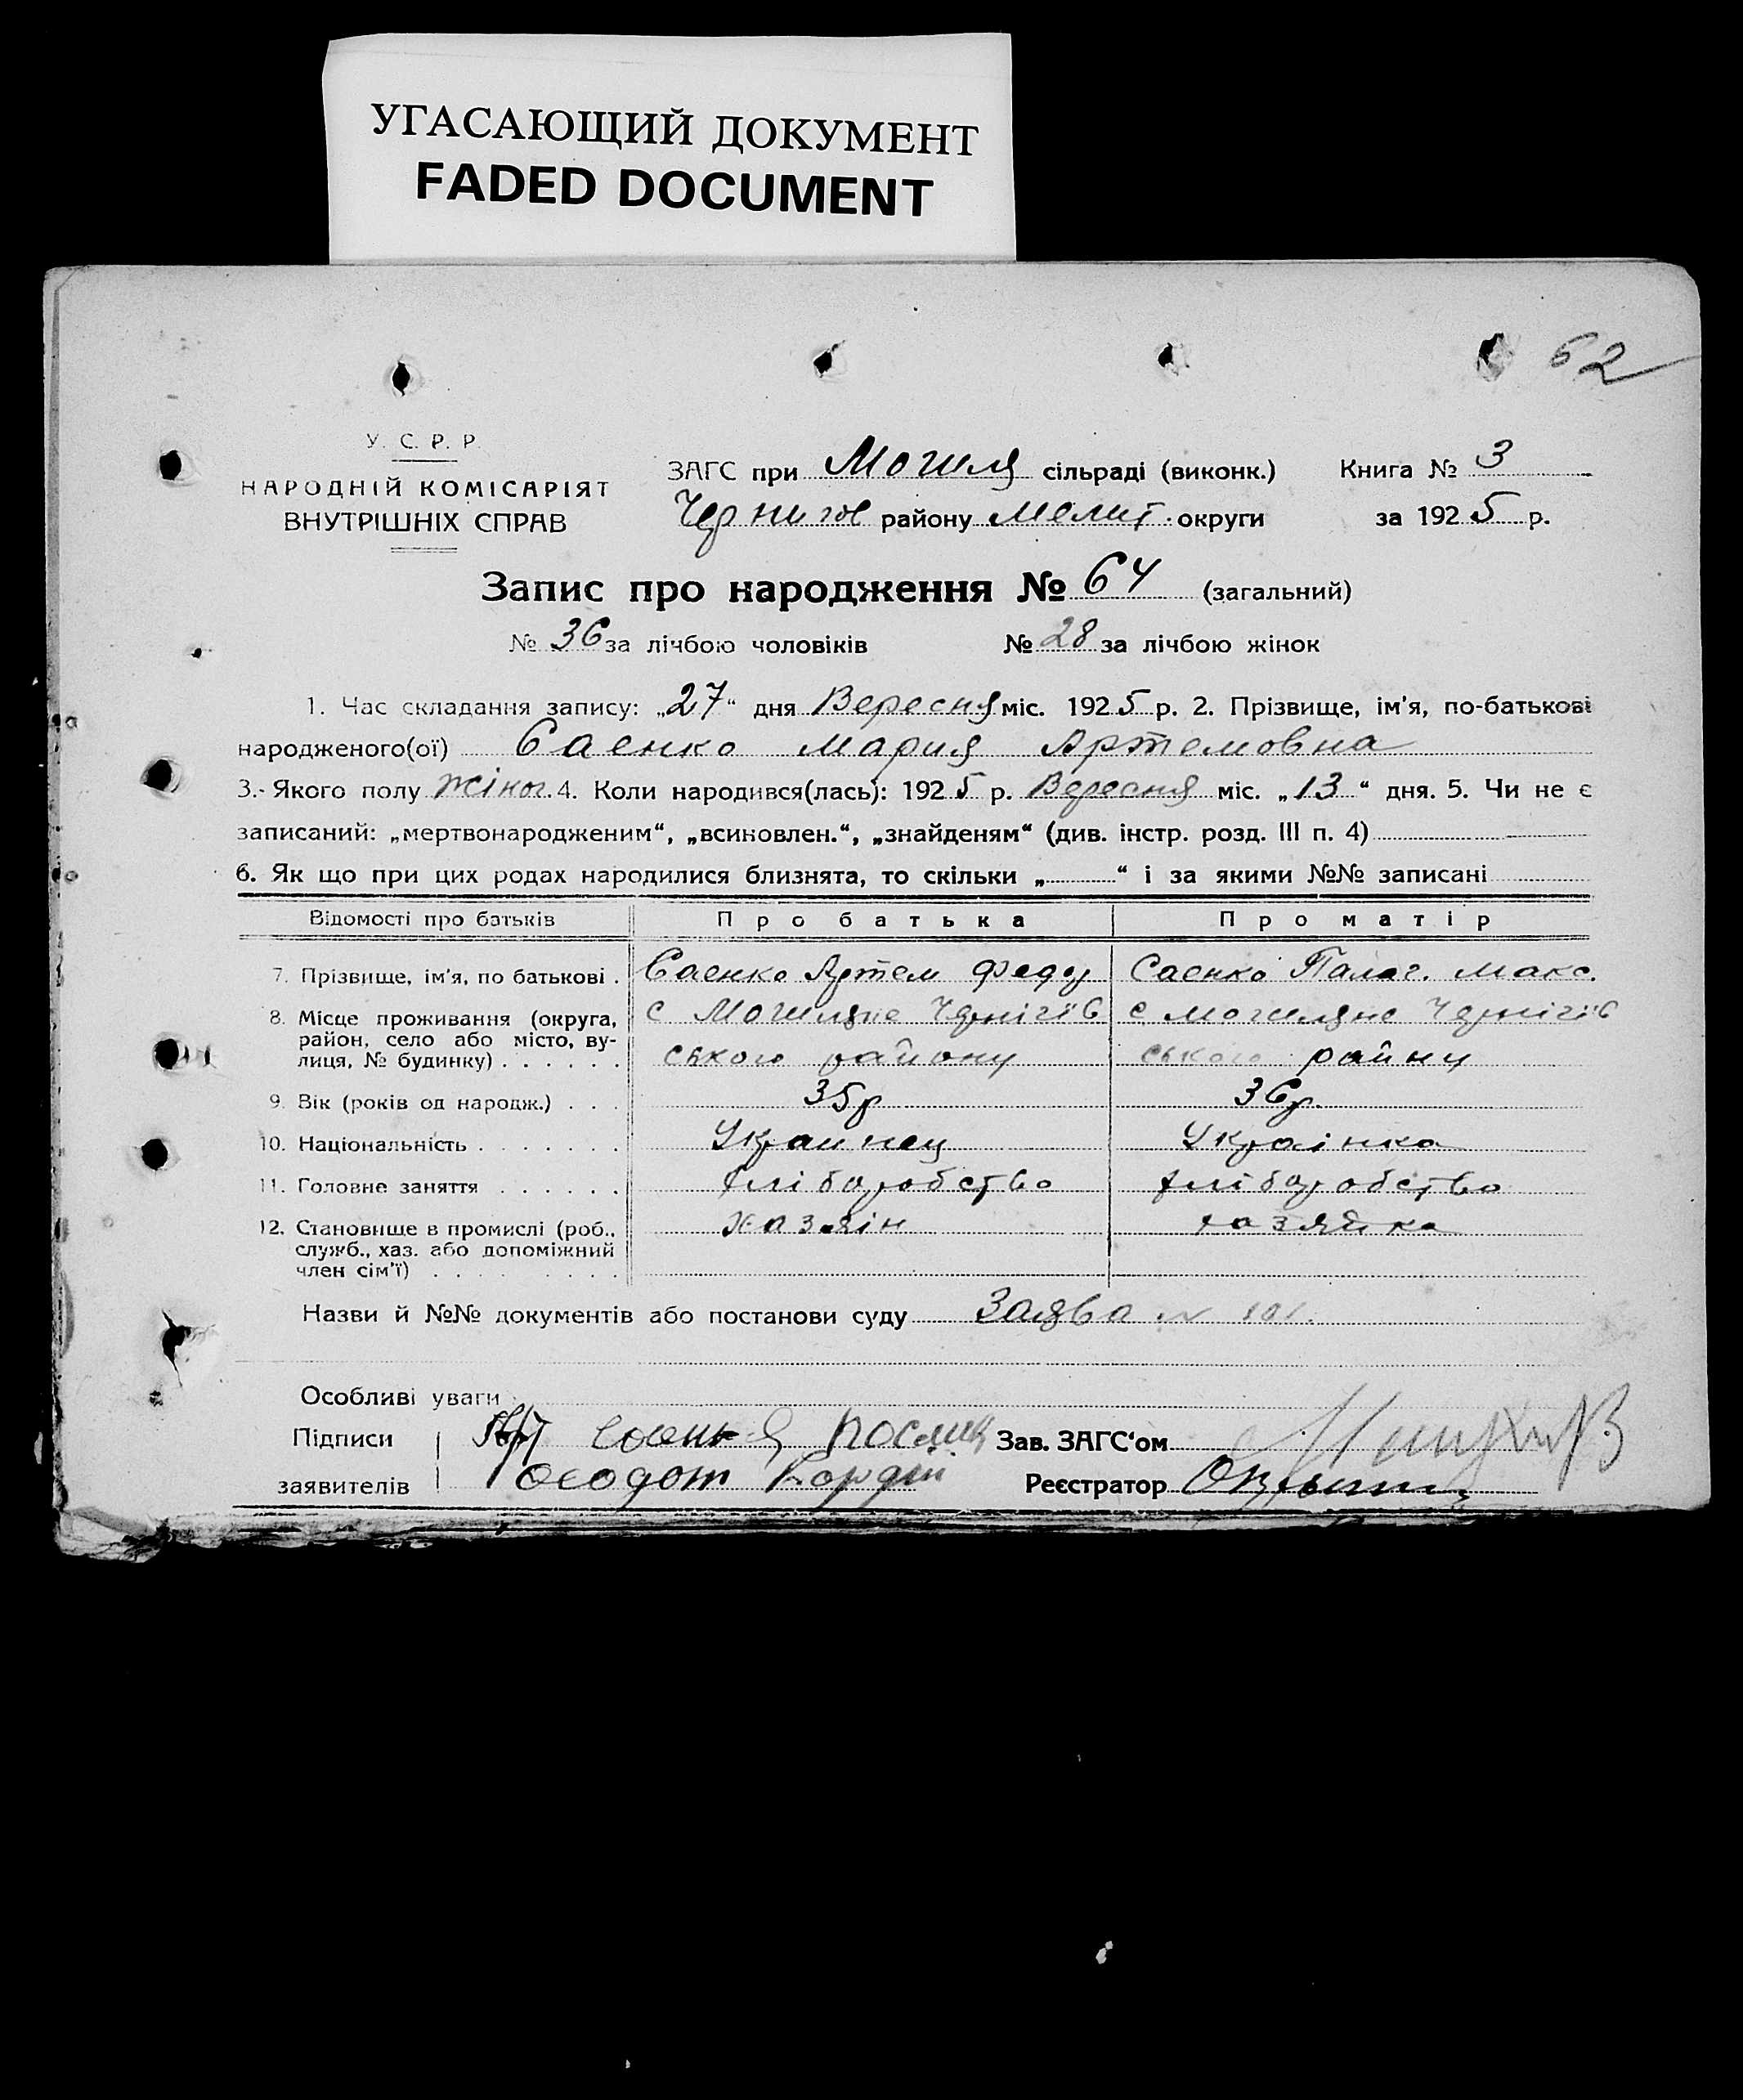 УГАСАЮЩИЙ ДОКУМЕНТ
FADED DOCUMENT
62
У. С. Р. Р.
НАРОДНІЙ КОМІСАРІЯТ
ВНУТРІШНІХ СПРАВ
ЗАГС при Могиля сільраді (виконк.) Книга № 3
Чернигов району Мелит. округи за 1925 р.
Запис про народження № 64 (загальний)
№ 36 за лічбою чоловіків № 28 за лічбою жінок
1. Час складання запису: „27“ дня Вересня міс. 1925 р. 2. Прізвище, ім'я, по-батькові
народженого(ої) Саенко Мария Артемовна
3. Якого полу жіноч. 4. Коли народився(лась): 1925 р. Вересня міс. „13“ дня. 5. Чи не є
записаний: „мертвонародженим“, „всиновлен.“, „знайденям“ (див. інстр. розд. III п. 4)
6. Як що при цих родах народилися близнята, то скільки „ “ і за якими №№ записані
Відомості про батьків Про батька Про матір
7. Прізвище, ім'я, по батькові . Саенко Артем Федор Саенко Палаг. Макс.
8. Місце проживання (округа, с Могиляне Чернігів с Могиляне Чернігів
район, село або місто, ву-
лиця, № будинку) . . . . . . ського району ського району
9. Вік (років од народж.) . . . 35р 36р.
10. Національність . . . . . . . Украинец Українка
11. Головне заняття . . . . . . хліборобство хліборобство
12. Становище в промислі (роб., хазяін хазяйка
служб., хаз. або допоміжний
член сім'ї) . . . . . . . . .
Назви й №№ документів або постанови суду Заява № 101.
Особливі уваги
Підписи Саенко Зав. ЗАГС‘ом
заявителів Феодот Реєстратор